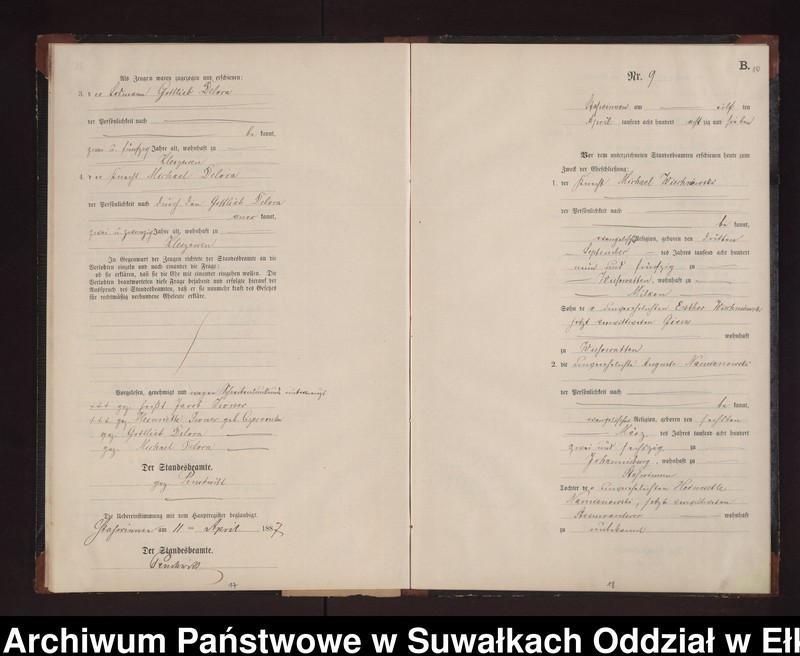 Als Zeugen waren zugezogen und erschienen:
3. der Gottlieb Delora
der Persönlichkeit nach
be kannt,
zwei u. fünfzig Jahre alt, wohnhaft zu
Kleszewen
4. der Knecht Michael Delora
der Persönlichkeit nach durch den Gottlieb Delora
kannt,
zwei u. zwanzig Jahre alt, wohnhaft zu
Kleszewen
In Gegenwart der Zeugen richtete der Standesbeamte an die
Verlobten einzeln und nach einander die Frage:
ob sie erklären, daß sie die Ehe mit einander eingehen wollen. Die
Verlobten beantworteten diese Frage bejahend und erfolgte hierauf der
Ausspruch des Standesbeamten, daß er sie nunmehr kraft des Gesetzes
für rechtmäßig verbundene Eheleute erkläre.
Vorgelesen, genehmigt und wegen Schreibensunkunde unterkreuzt
+++ gez. Jacob
+++ gez. Henriette geb.
gez. Gottlieb Delora
gez. Michael Delora
Der Standesbeamte.
gez.
Die Uebereinstimmung mit dem Hauptregister beglaubigt.
am 11 ten April 1887
Der Standesbeamte.
17
B.
Nr. 9
10
am elf ten
April tausend acht hundert acht zig und sieben
Vor dem unterzeichneten Standesbeamten erschienen heute zum
Zweck der Eheschließung:
1. der Knecht Michael
der Persönlichkeit nach
be kannt,
evangelischer Religion, geboren den dritten
September des Jahres tausend acht hundert
neun und fünfzig zu
, wohnhaft zu
Milken
Sohn der unverehelichten Esther
jetzt verwittweten
wohnhaft
zu
2. die unverehelichte Auguste Namianowski
der Persönlichkeit nach
be kannt,
evangelischer Religion, geboren den sechsten
März des Jahres tausend acht hundert
zwei und sechszig zu
Johannisburg, wohnhaft zu
Tochter der unverehelichten Henriette
Namianowski, jetzt verwittweten
wohnhaft
zu unbekannt
18
Archiwum Państwowe w Suwałkach Oddział w Ełk